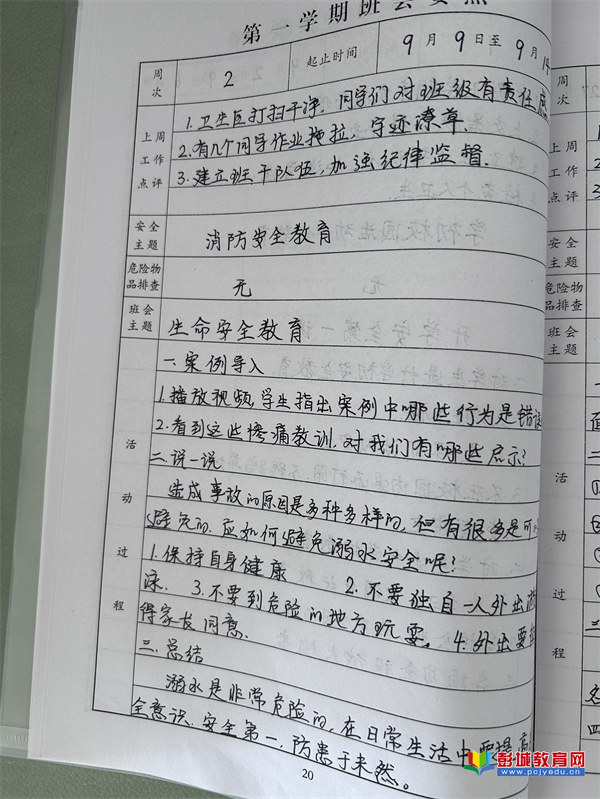 第一学期班会要点
周次 2 起止时间 9月9日至9月14
上周工作点评
1.卫生区打扫干净.同学们对班级有责任感
2.有几个同学作业拖拉,字迹潦草.
3.建立班干队伍,加强纪律监督.
安全主题 消防安全教育
危险物品排查 无
班会主题 生命安全教育
活动过程
一.案例导入
1.播放视频,学生指出案例中哪些行为是错误
2.看到这些惨痛教训.对我们有哪些启示?
二.说一说
造成事故的原因是多种多样的,但有很多是可以
避免的.应如何避免溺水安全呢?
1.保持自身健康 2.不要独自一人外出游
泳. 3.不要到危险的地方玩耍. 4.外出要
得家长同意.
三.总结
溺水是非常危险的,在日常生活中要提高
全意识.安全第一,防患于未然。
20
彭城教育网
www.pcjyedu.cn